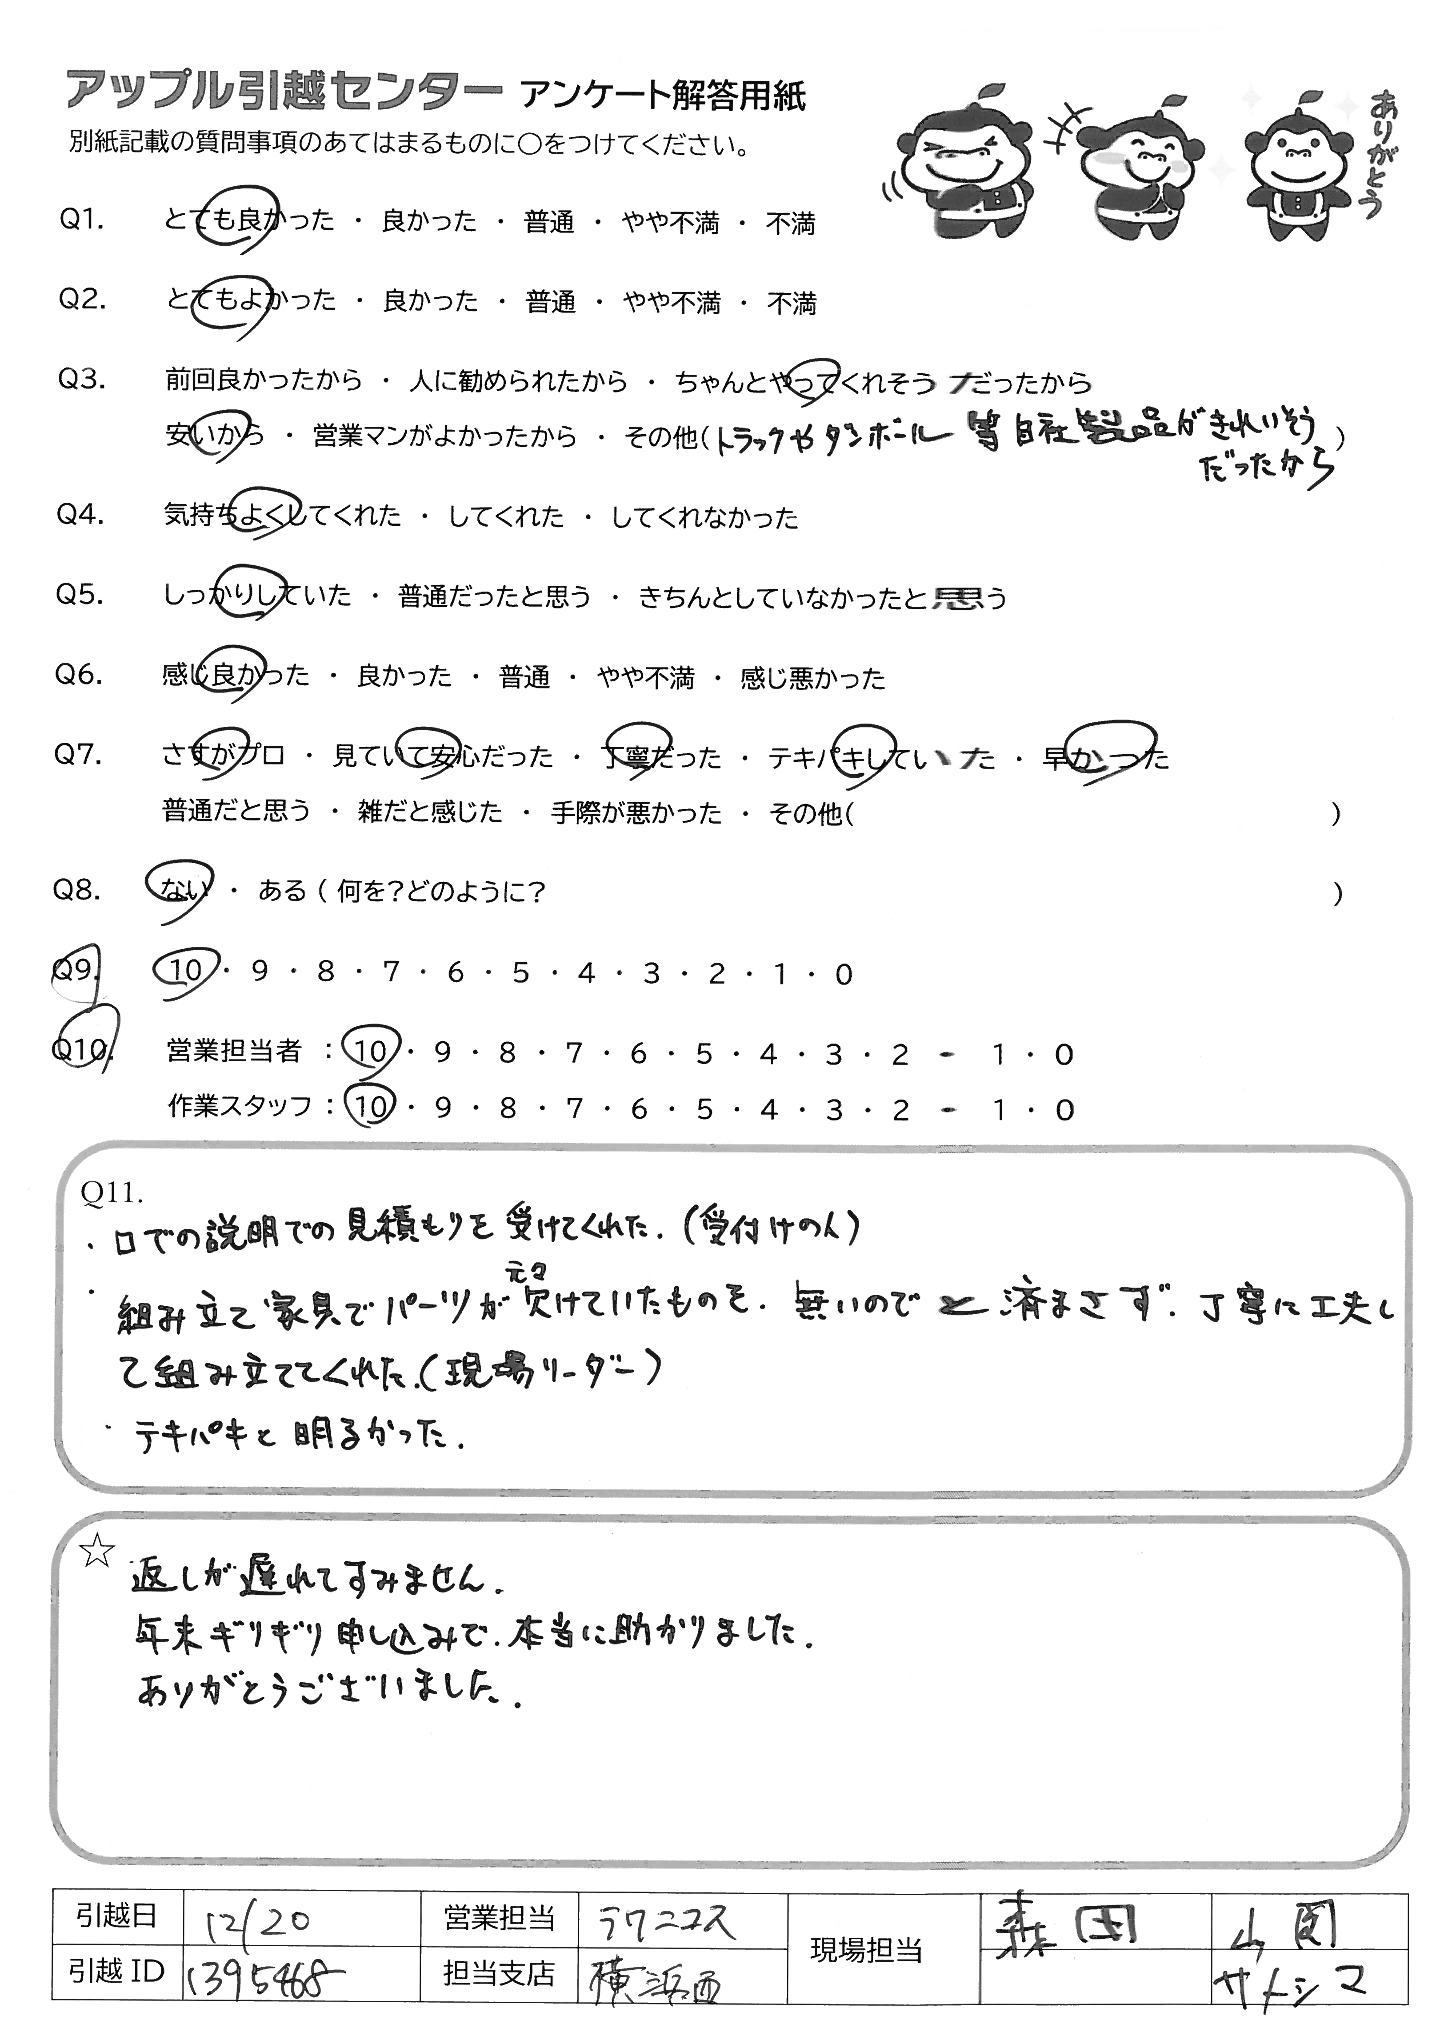 アップル引越センター アンケート解答用紙
別紙記載の質問事項のあてはまるものに○をつけてください。
ありがとう
Q1. とても良かった ・ 良かった ・ 普通 ・ やや不満 ・ 不満
Q2. とてもよかった ・ 良かった ・ 普通 ・ やや不満 ・ 不満
Q3. 前回良かったから ・ 人に勧められたから ・ ちゃんとやってくれそうだったから
安いから ・ 営業マンがよかったから ・ その他(トラックやダンボール等自社製品がきれいそう)
だったから
Q4. 気持ちよくしてくれた ・ してくれた ・ してくれなかった
Q5. しっかりしていた ・ 普通だったと思う ・ きちんとしていなかったと思う
Q6. 感じ良かった ・ 良かった ・ 普通 ・ やや不満 ・ 感じ悪かった
Q7. さすがプロ ・ 見ていて安心だった ・ 丁寧だった ・ テキパキしていた ・ 早かった
普通だと思う ・ 雑だと感じた ・ 手際が悪かった ・ その他( )
Q8. ない ・ ある ( 何を?どのように? )
Q9. 10 ・ 9 ・ 8 ・ 7 ・ 6 ・ 5 ・ 4 ・ 3 ・ 2 ・ 1 ・ 0
Q10. 営業担当者 : 10 ・ 9 ・ 8 ・ 7 ・ 6 ・ 5 ・ 4 ・ 3 ・ 2 - 1 ・ 0
作業スタッフ : 10 ・ 9 ・ 8 ・ 7 ・ 6 ・ 5 ・ 4 ・ 3 ・ 2 - 1 ・ 0
Q11.
・口での説明での見積もりを受けてくれた.(受付けの人)
元々
・組み立て家具でパーツが欠けていたものを、無いのでと済まさず、丁寧に工夫し
て組み立ててくれた.(現場リーダー)
・テキパキと明るかった.
☆
返しが遅れてすみません.
年末ギリギリ申し込みで、本当に助かりました.
ありがとうございました.
引越日 12/20 営業担当 ラクニコス 現場担当 森田 山岡
引越 ID 1395468 担当支店 横浜西 サトシマ